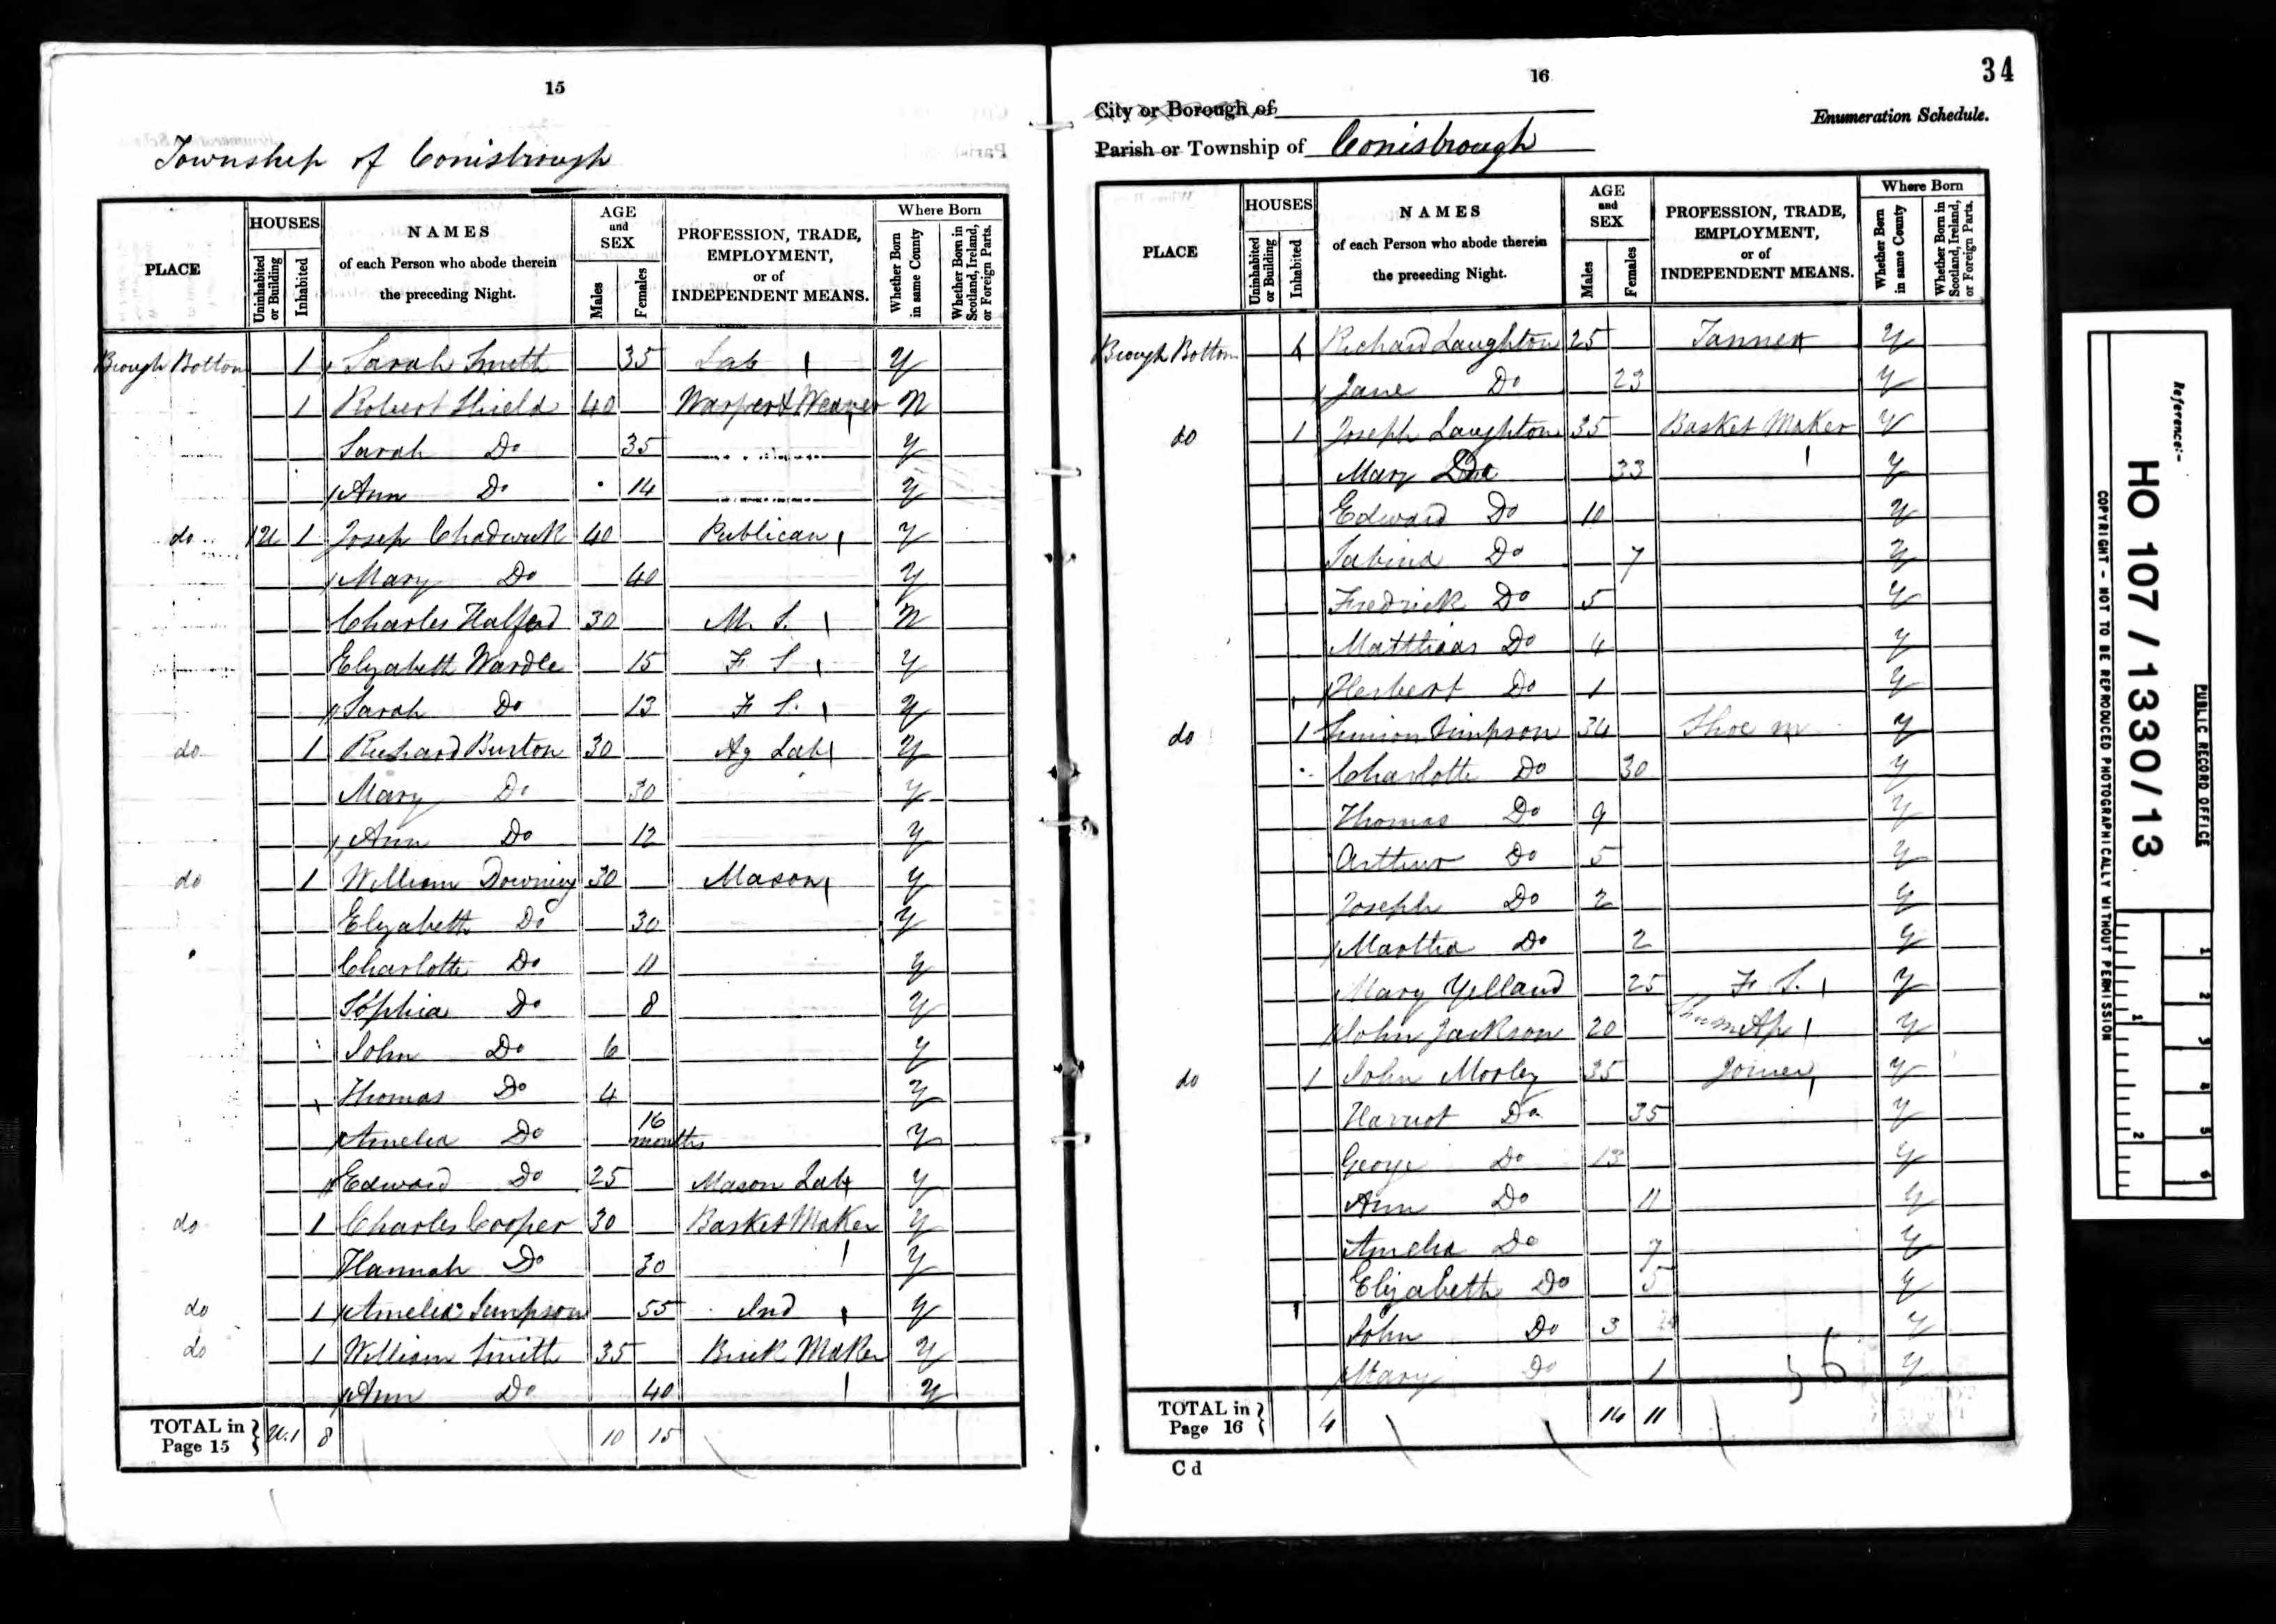 15
Township of Conisbrough
PLACE
HOUSES
Uninhabited or Building
Inhabited
NAMES
of each Person who abode therein
the preceding Night.
AGE and SEX
Males
Females
PROFESSION, TRADE, EMPLOYMENT, or of INDEPENDENT MEANS.
Where Born
Whether Born in same County
Whether Born in Scotland, Ireland, or Foreign Parts.
Brough Bottom 1 Sarah Smith 35 Lab Y
1 Robert Shield 40 Warper & Weaver N
Sarah Do 35 Y
Ann Do 14 Y
do 1U 1 Josep Chadwick 40 Publican Y
Mary Do 40 Y
Charles Halford 30 M. S. N
Elizabeth Wardle 15 F S Y
Sarah Do 13 F S. Y
do 1 Richard Burton 30 Ag Lab Y
Mary Do 30 Y
Ann Do 12 Y
do 1 William Downing 30 Mason Y
Elizabeth Do 30 Y
Charlotte Do 11 Y
Sophia Do 8 Y
John Do 6 Y
Thomas Do 4 Y
Amelia Do 16 months Y
Edward Do 25 Mason Lab Y
do 1 Charles Cooper 30 Basket Maker Y
Hannah Do 30 Y
do 1 Amelia Simpson 55 Ind Y
do 1 William Smith 35 Brick Maker Y
Ann Do 40 Y
TOTAL in Page 15 U.1 8 10 15
16
34
City or Borough of
Enumeration Schedule.
Parish or Township of Conisbrough
PLACE
HOUSES
Uninhabited or Building
Inhabited
NAMES
of each Person who abode therein
the preceding Night.
AGE and SEX
Males
Females
PROFESSION, TRADE, EMPLOYMENT, or of INDEPENDENT MEANS.
Where Born
Whether Born in same County
Whether Born in Scotland, Ireland, or Foreign Parts.
Brough Bottom 1 Richard Laughton 25 Tanner Y
Jane Do 23 Y
do 1 Joseph Laughton 35 Basket Maker Y
Mary Do 33 Y
Edward Do 10 Y
Sabina Do 7 Y
Fredrick Do 5 Y
Matthias Do 4 Y
Herbert Do 1 Y
do 1 Simpson 34 Shoe m Y
Charlotte Do 30 Y
Thomas Do 9 Y
Arthur Do 5 Y
Joseph Do 2 Y
Martha Do 2 Y
Mary Yelland 25 F S. Y
John Jackson 20 Ap Y
do 1 John Morley 35 Joiner Y
Harriot Do 35 Y
George Do 13 Y
Ann Do 11 Y
Amelia Do 7 Y
Elizabeth Do 5 Y
John Do 3 Y
Mary Do 1 Y
TOTAL in Page 16 4 14 11
C d
Reference:-
HO 107 / 1330/13
PUBLIC RECORD OFFICE
COPYRIGHT - NOT TO BE REPRODUCED PHOTOGRAPHICALLY WITHOUT PERMISSION
1 2 3 4 5 6
1 2